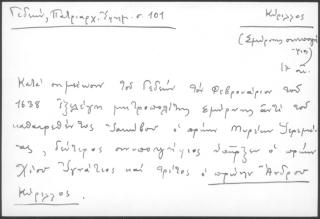 Γεδεών, Πατριαρχ. Ἐφημ. σ 101
Κύριλλος
(Σμύρνης συνυποψή-
φιος)
17 αι.
Κατά σημείωσιν τοῦ Γεδεών τόν Φεβρουάριον τοῦ
1638 ἐξελέγη μητροπολίτης Σμύρνης ἀντί τοῦ
καθαιρεθέντος Ἰακώβου ὁ πρώην Μυρέων Ἱερεμί-
ας, δεύτερος συνυποψήφιος ὑπῆρξεν ὁ πρώην
Χίου Ἰγνάτιος καί τρίτος ὁ πρώην Ἄνδρου
Κύριλλος.